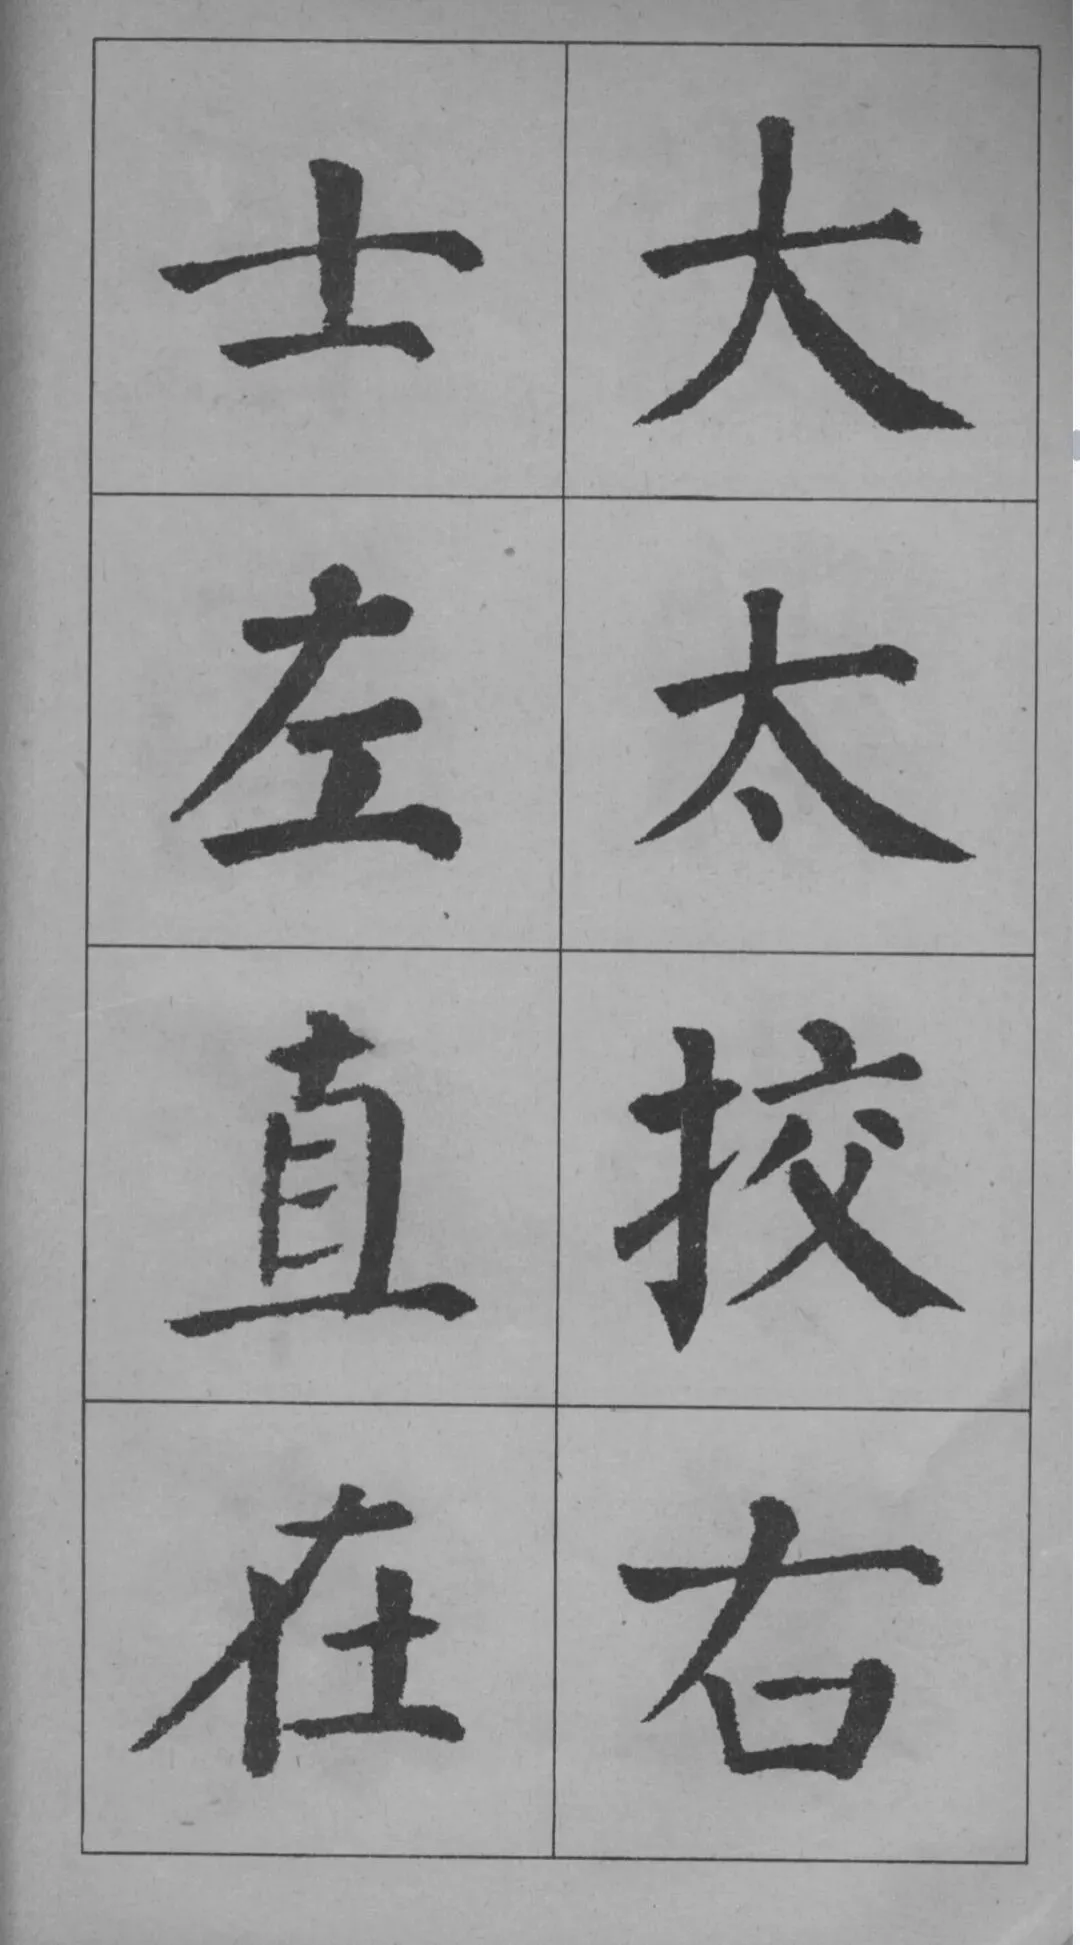 大太挍右
士左直在